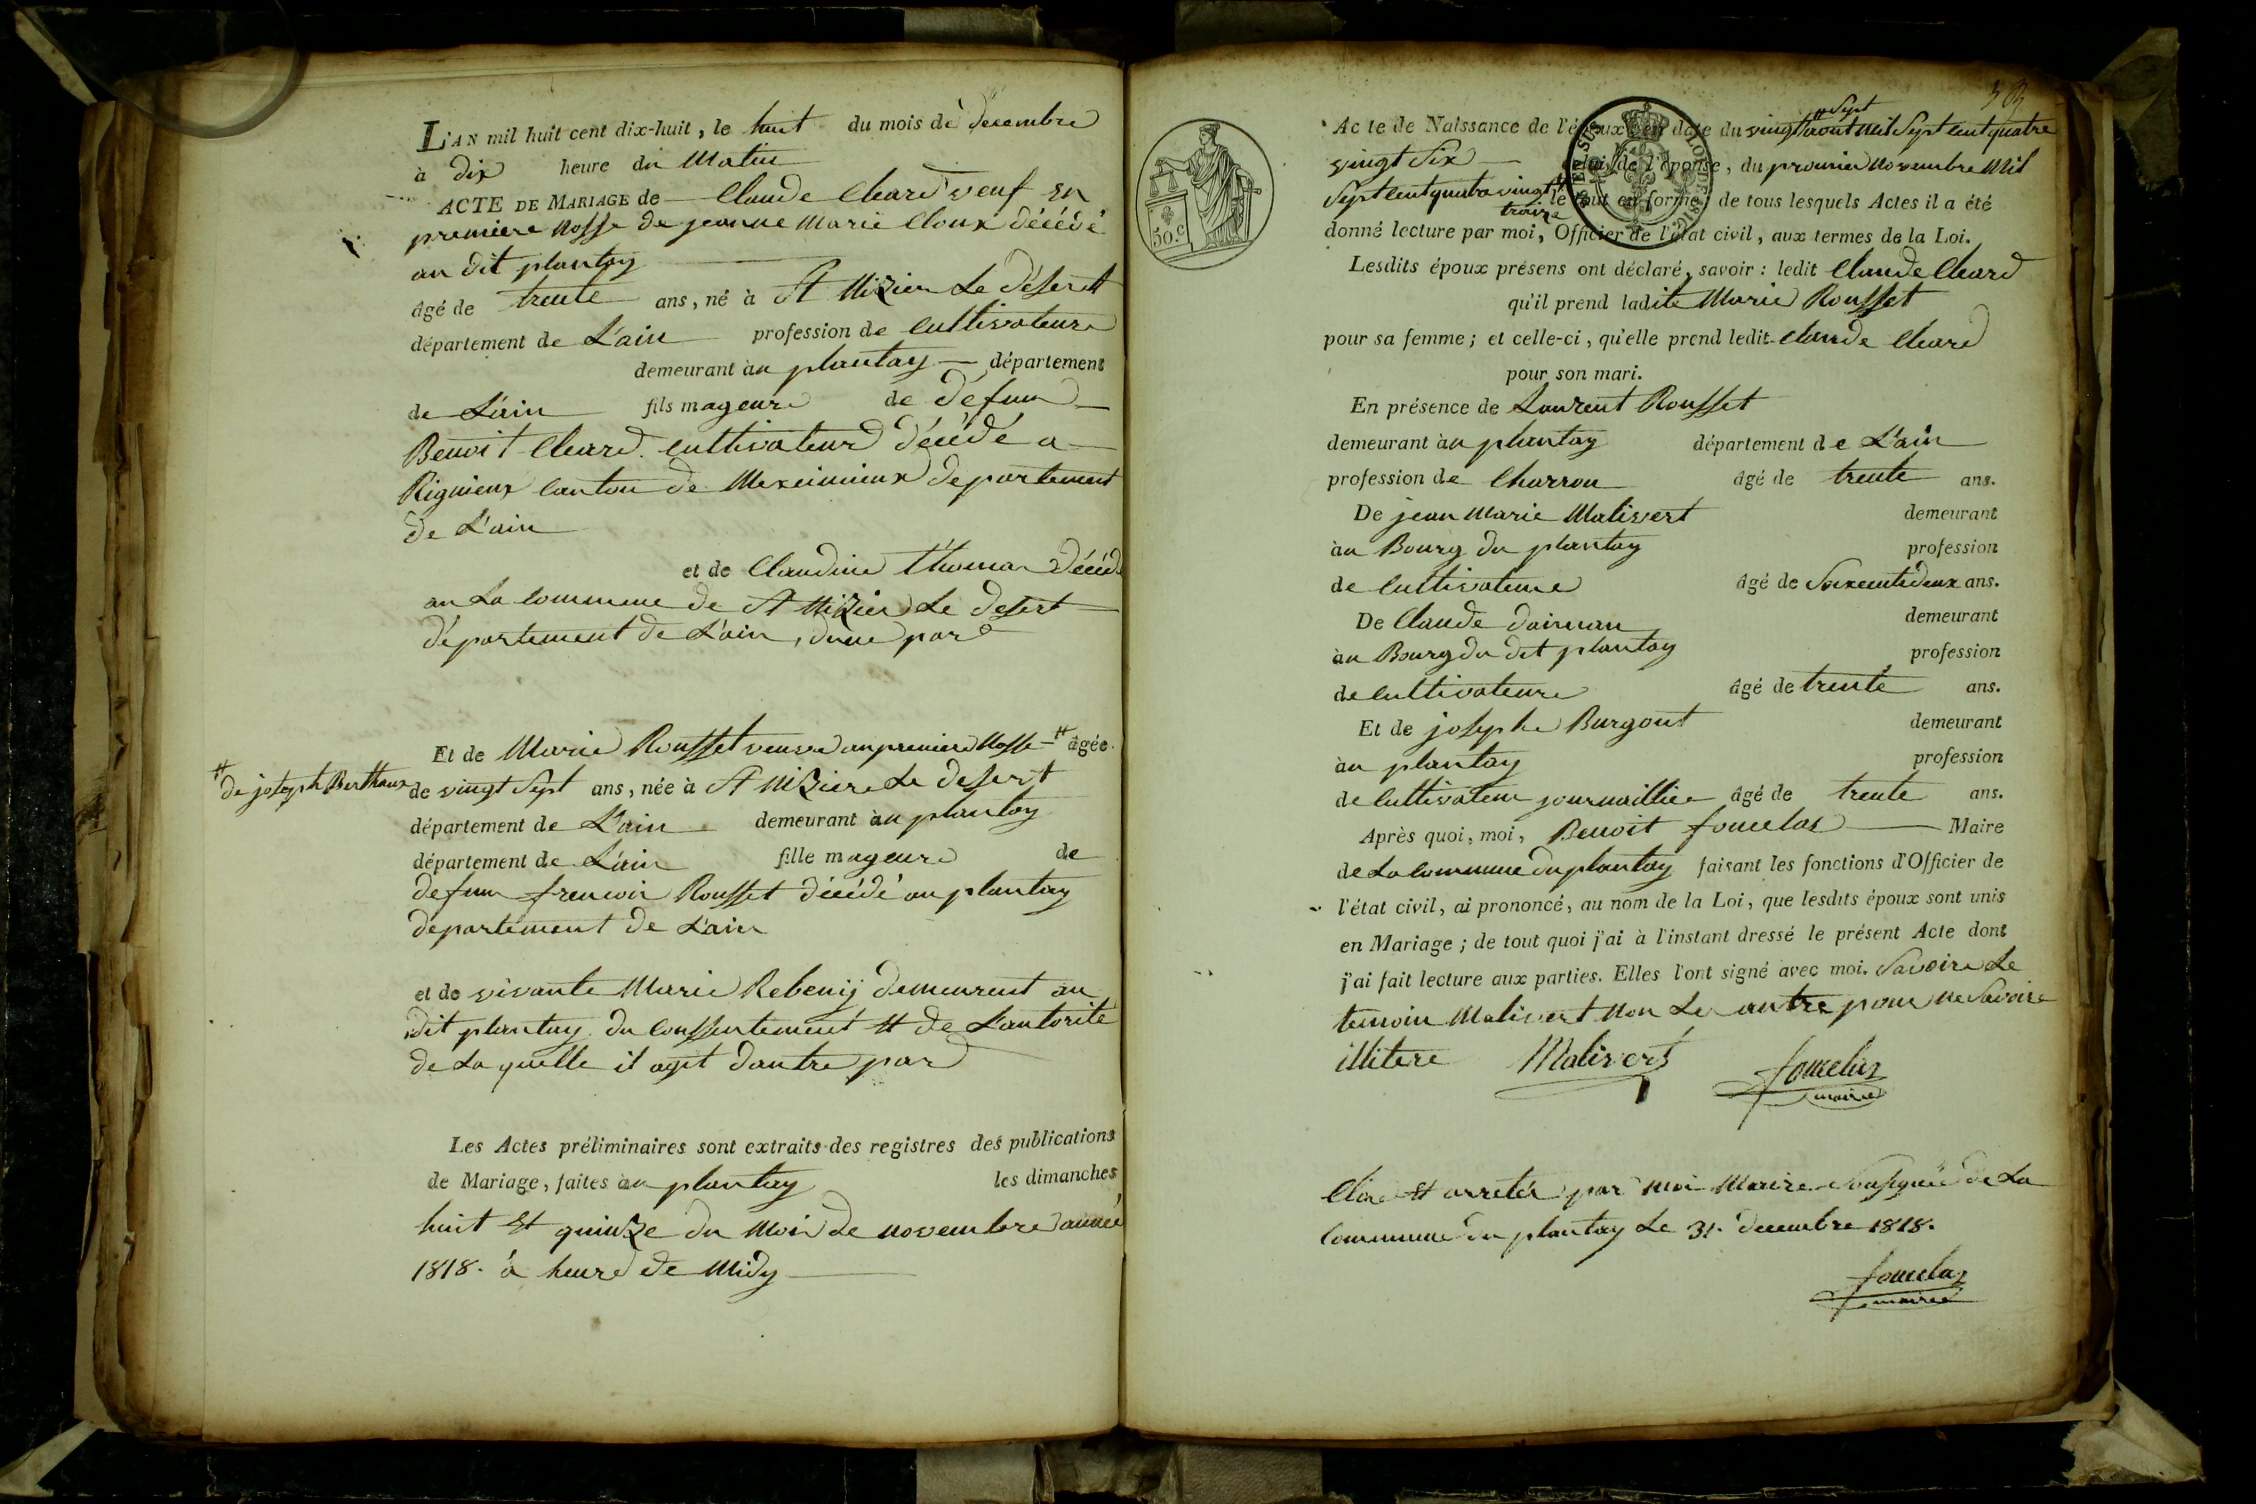 L'AN mil huit cent dix-huit, le huit du mois de decembre
à dix heure du Matin
ACTE DE MARIAGE de Claude Cleard veuf en
premiere Nosse de jeanne Marie Cloux décédé
au dit plantay
âgé de trente ans, né à St Nizier Le désert
département de L'ain profession de Cultivateur
demeurant au plantay département
de L'ain fils mageur de défun
Benoit Cleard cultivateur décédé a
Rignieux Canton de Meximieux departement
de L'ain
et de Claudine thoma décédé
au La Commune de St Nizier Le desert
département de L'ain, dune par
Et de Marie Rousset veuve au premiere Nosse # âgée
# de joseph Berthaux
de vingt Sept ans, née à St Niziere Le desert
département de L'ain demeurant àu plantay
département de L'ain fille mageure de
defun francoir Rousset décédé au plantay
departement de L'ain
et de vivante Marie Rebeniy demeurent au
dit plantay du Conssentement et de L'autorité
de La quelle il agit dautre par
Les Actes préliminaires sont extraits des registres des publications
de Mariage, faites àu plantay les dimanches
huit et quinze du Mois de novembre année
1818. à heure de Midy
Acte de Naissance de l'époux en date du vingt Sept aout Mil Sept Cent quatre
vingt Six celui de l'épouse, du premier Novembre Mil
Sept Cent quatre vingt traize le tout en forme; de tous lesquels Actes il a été
donné lecture par moi, Officier de l'état civil, aux termes de la Loi.
50.c
Lesdits époux présens ont déclaré, savoir : ledit Claude Cleard
qu'il prend ladite Marie Rousset
pour sa femme; et celle-ci, qu'elle prend ledit Claude Cleard
pour son mari.
En présence de Laurent Rousset
demeurant àu plantay département de L'ain
profession de Charron âgé de trente ans.
De jean Marie Malivert demeurant
àu Bourg du plantay profession
de Cultivateure âgé de Soixente deux ans.
De Claude dainan demeurant
àu Bourg du dit plantay profession
de Cultivateure âgé de trente ans.
Et de josephe Burgout demeurant
àu plantay profession
de Cultivateur journaillier âgé de trente ans.
Après quoi, moi, Benoit fouvelas Maire
de La Commune du plantay faisant les fonctions d'Officier de
l'état civil, ai prononcé, au nom de la Loi, que lesdits époux sont unis
en Mariage; de tout quoi j'ai à l'instant dressé le présent Acte dont
j'ai fait lecture aux parties. Elles l'ont signé avec moi. Savoire Le
temoin Malivert Non Les autre pour ne Savoire
illitere Malivert
maire
Clos et arretér par Moi Maire Sousigné de La
Commune du plantay Le 31. decembre 1818.
maire